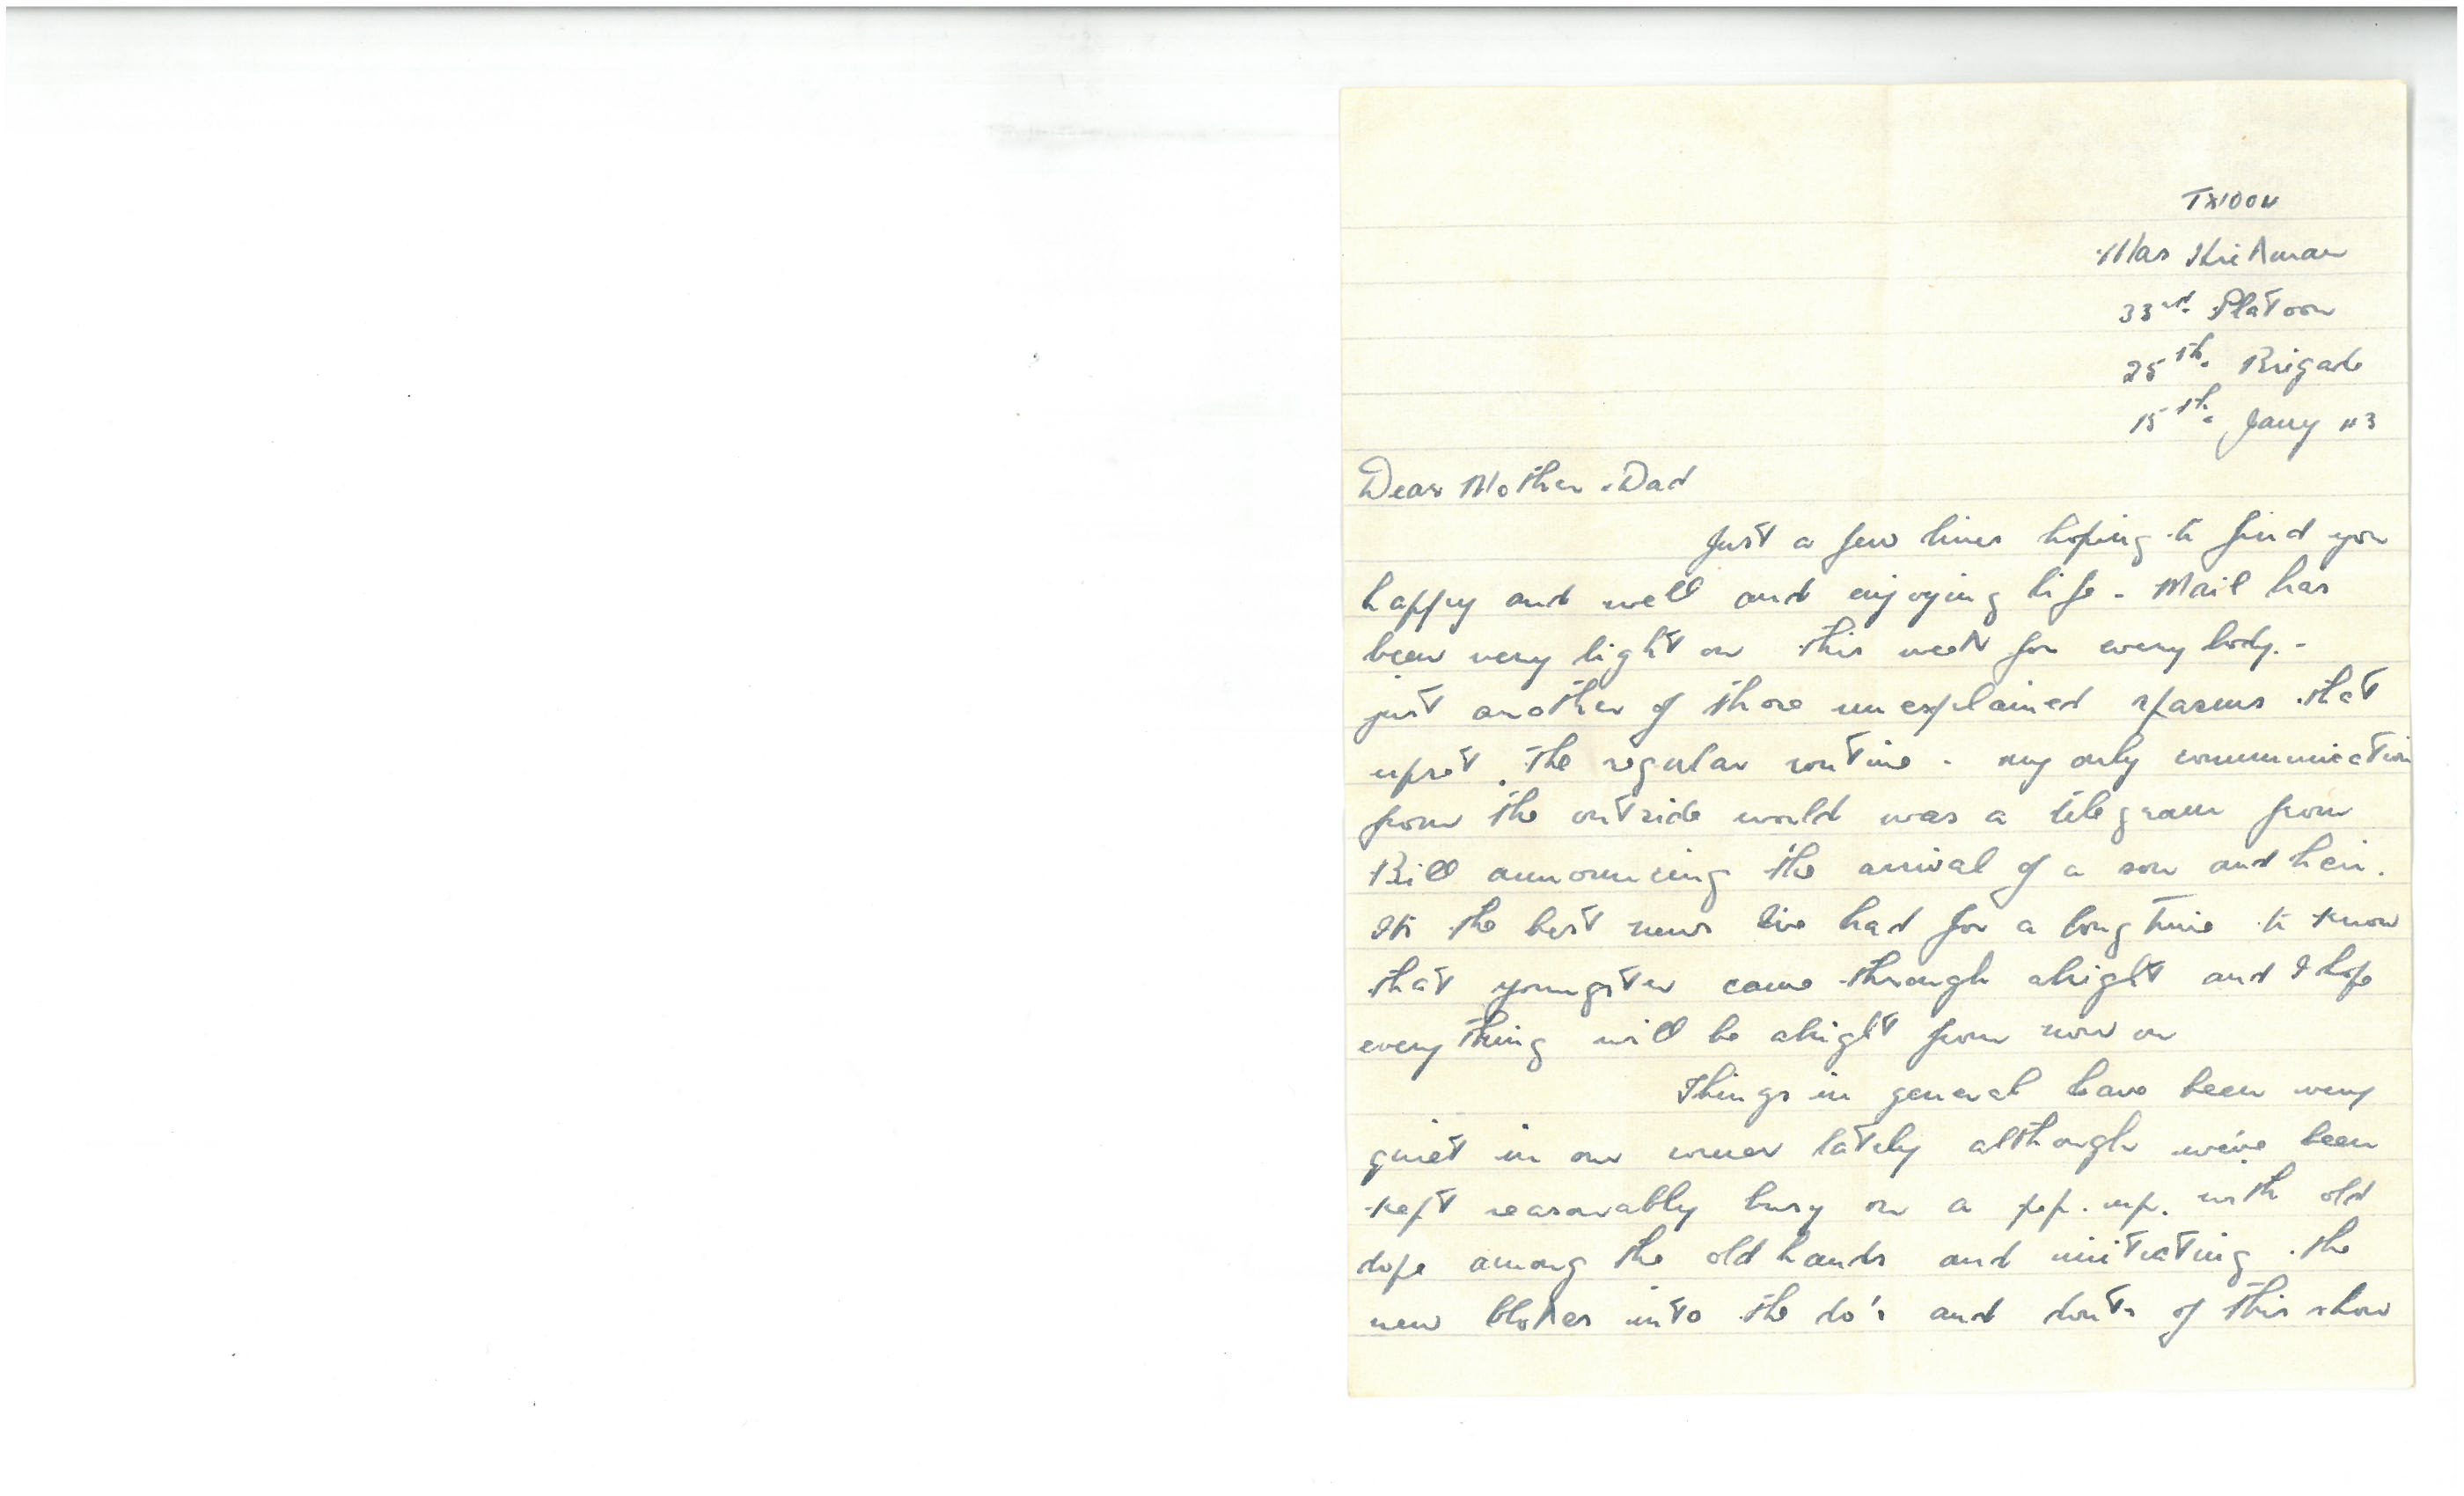 TX1004
33rd. Platoon
25th. Brigade
15th. Jany 43
Dear Mother & Dad
Just a few lines hoping to find you
happy and well and enjoying life - Mail has
been very light on this week for every body. -
just another of those unexplained spasms that
upset the regular routine - my only communication
from the outside world was a telegram from
Bill announcing the arrival of a son and heir.
Its the best news Ive had for a long time to know
that youngster came through alright and I hope
every thing will be alright from now on
Things in general have been very
quiet in our corner lately although we've been
kept reasonably busy on a pep. up. with old
dope among the old hands and initiating the
new blokes into the do's and donts of this show